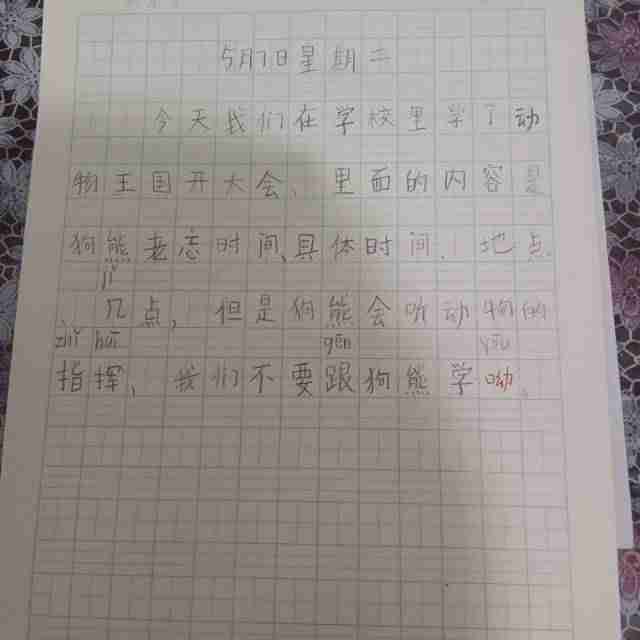 5月10星期二
今天我们在学校里学了动
物王国开大会、里面的内容是
狗熊老忘时间、具体时间、地点、
jǐ
几点，但是狗熊会听动物的
zhǐ huī gēn yōu
指挥、我们不要跟狗熊学呦。